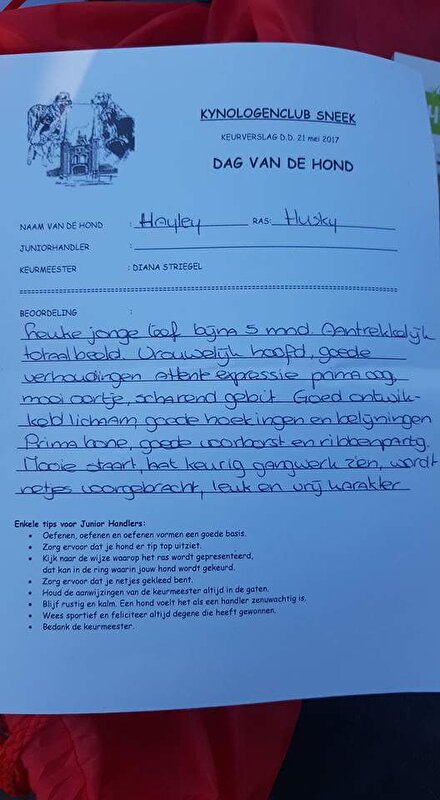 KYNOLOGENCLUB SNEEK
KEURVERSLAG D.D. 21 mei 2017
DAG VAN DE HOND
NAAM VAN DE HOND : Hayley RAS: Husky
JUNIORHANDLER :
KEURMEESTER : DIANA STRIEGEL
BEOORDELING :
Leuke jonge teef bijna 5 mnd Aantrekkelijk
totaalbeeld Vrouwelijk hoofd, goede
verhoudingen attent expressie prima oog,
mooi oortje, scharend gebit Goed ontwik-
keld lichaam, goede hoekingen en belijningen
Prima bone, goede voorborst en ribbenpartij
Mooie staart, laat keurig gangwerk zien, wordt
netjes voorgebracht, leuk en vrij karakter
Enkele tips voor Junior Handlers:
• Oefenen, oefenen en oefenen vormen een goede basis.
• Zorg ervoor dat je hond er tip top uitziet.
• Kijk naar de wijze waarop het ras wordt gepresenteerd,
dat kan in de ring waarin jouw hond wordt gekeurd.
• Zorg ervoor dat je netjes gekleed bent.
• Houd de aanwijzingen van de keurmeester altijd in de gaten.
• Blijf rustig en kalm. Een hond voelt het als een handler zenuwachtig is.
• Wees sportief en feliciteer altijd degene die heeft gewonnen.
• Bedank de keurmeester.